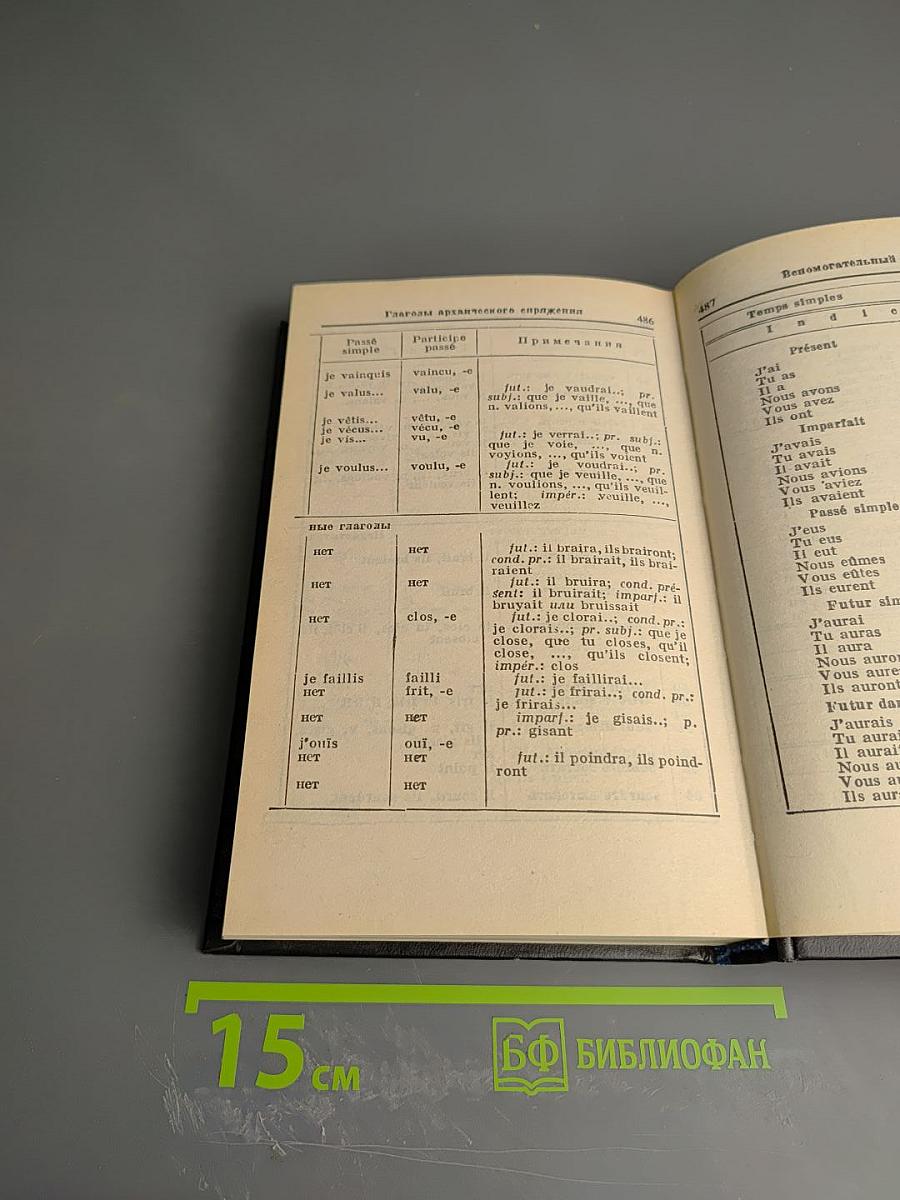 Глаголы архаического спряжения 486
Passé simple Participe passé Примечания
je vainquis vaincu, -e
je valus... valu, -e fut.: je vaudrai..; pr.
subj.: que je vaille, ..., que
n. valions, ..., qu'ils vaillent
je vêtis... vêtu, -e
je vécus... vécu, -e
je vis... vu, -e fut.: je verrai..; pr. subj.:
que je voie, ..., que n.
voyions, ..., qu'ils voient
je voulus... voulu, -e fut.: je voudrai..; pr.
subj.: que je veuille, ..., que
n. voulions, ..., qu'ils veuil-
lent; impér.: veuille, ...,
veuillez
ные глаголы
нет нет fut.: il braira, ils brairont;
cond. pr.: il brairait, ils brai-
raient
нет нет fut.: il bruira; cond. pré-
sent: il bruirait; imparf.: il
bruyait или bruissait
нет clos, -e fut.: je clorai..; cond. pr.:
je clorais..; pr. subj.: que je
close, que tu closes, qu'il
close, ..., qu'ils closent;
impér.: clos
je faillis failli fut.: je faillirai...
нет frit, -e fut.: je frirai..; cond. pr.:
je frirais...
нет нет imparf.: je gisais..; p.
pr.: gisant
j'ouïs ouï, -e
нет нет fut.: il poindra, ils poind-
ront
нет нет
487 Вспомогательный
Temps simples
Indic
Présent
J'ai
Tu as
Il a
Nous avons
Vous avez
Ils ont
Imparfait
J'avais
Tu avais
Il avait
Nous avions
Vous aviez
Ils avaient
Passé simple
J'eus
Tu eus
Il eut
Nous eûmes
Vous eûtes
Ils eurent
Futur sim
J'aurai
Tu auras
Il aura
Nous auron
Vous aure
Ils auront
Futur dan
J'aurais
Tu aurai
Il aurait
Nous au
Vous au
Ils aura
15 см
БФ БИБЛИОФАН